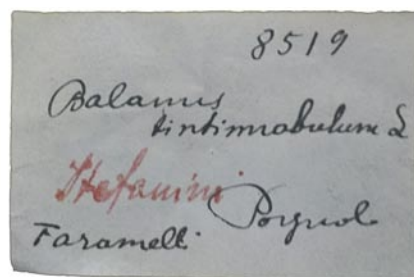 8519
Balanus
tintinnabulum L
Stefanini
Porgnol
Faramelli